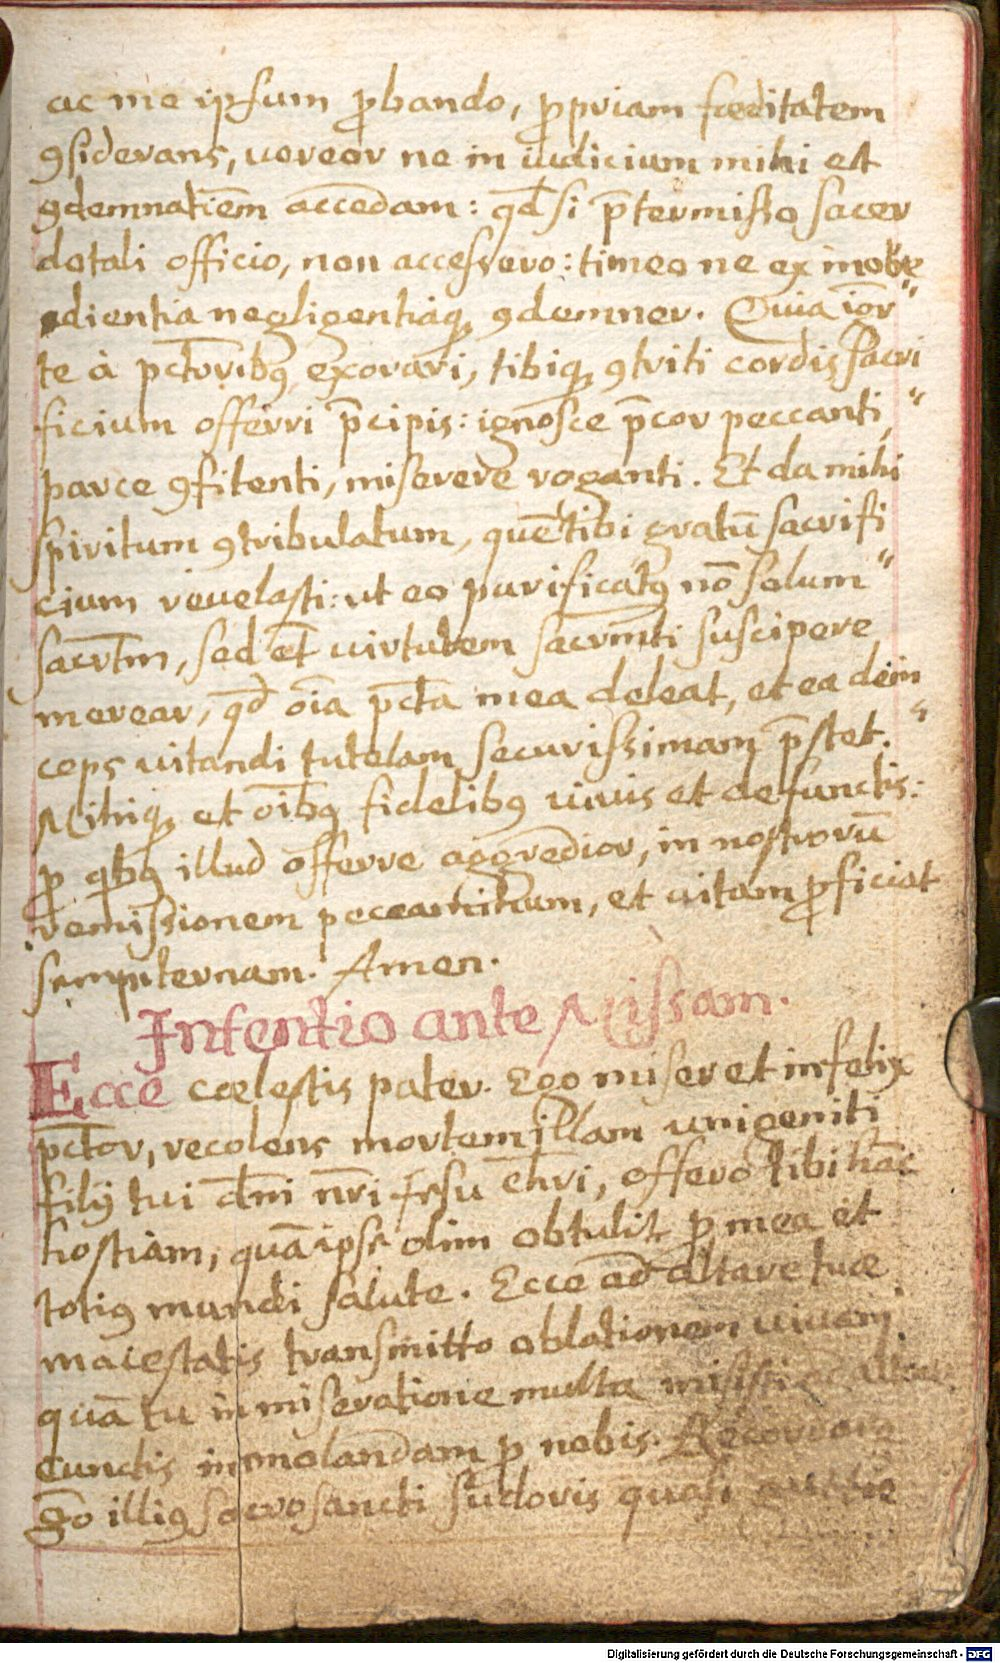 ac me ipsum ꝓbando, ꝓpriam fœditatem
ꝯsiderans, uereor ne in iudicium mihi et
ꝯdemnatiēm accedam: qđ si p̄termisso sacer
dotali officio, non accessero: timeo ne ex inobe
dientia negligentiaqꝫ ꝯdemner. Quia iḡr
te à pctoribꝰ exorari, tibiqꝫ ꝯtriti cordis sacri
ficium offerri p̄cipis: ignosce p̄cor peccanti,
parce ꝯfitenti, miserere roganti. Et da mihi
spiritum ꝯtribulatum, quē tibi gratū sacrifi
cium reuelasti: ut eo purificatꝰ nō solum
sacrtm̄, sed et̄ uirtutem sacrm̄ti suscipere
merear, qđ oīa pctā mea deleat, et ea dein
ceps uitandi tutelam securissimam p̄stet.
Mihiqꝫ et oībꝰ fidelibꝰ uiuis et defunctis:
ꝓ qibꝰ illud offerre aggredior, in nostrorū
remissionem peccaminum, et uitam ꝓficiat
sempiternam. Amen.
Intentio ante Missam.
Ecce cœlestis pater. Ego miser et infelix
pctor, recolens mortem illam unigeniti
filij tui dn̄i nr̄i Jesu Chr̄i, offero tibi hāc
hostiam, quā ipse olim obtulit ꝓ mea et
totiꝰ mundi salute. Ecce ad altare tuæ
maiestatis transmitto oblationem uiuam
quā tu in miseratione multa misisti
cunctis immolandam ꝓ nobis.
g̊o illiꝰ sacrosancti sudoris quasi guttæ